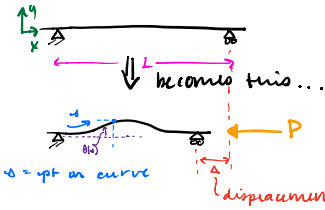 y
x
L
becomes this...
s
θ(s)
P
Δ
s = pt on curve
displacemen